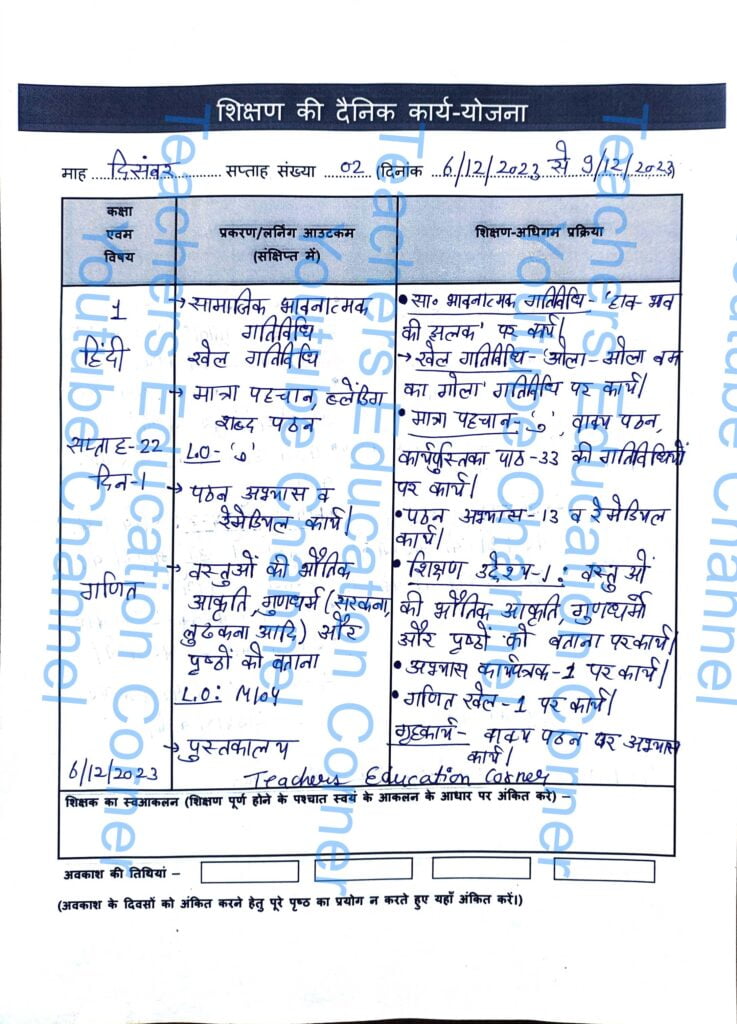 शिक्षण की दैनिक कार्य-योजना
माह ....दिसंबर........... सप्ताह संख्या ....02.... (दिनांक ..6/12/2023 से 9/12/2023)
कक्षा
एवम
विषय
प्रकरण/लर्निंग आउटकम
(संक्षिप्त में)
शिक्षण-अधिगम प्रक्रिया
1
हिंदी
सप्ताह-22
दिन-1
गणित
6/12/2023
→ सामाजिक भावनात्मक
गतिविधि
खेल गतिविधि
→ मात्रा पहचान, ब्लेंडिंग
शब्द पठन
L.O- 'ु'
→ पठन अभ्यास व
रेमेडियल कार्य।
→ वस्तुओं की भौतिक
आकृति, गुणधर्म (सरकना,
लुढ़कना आदि) और
पृष्ठों को बताना
L.O: M104
→ पुस्तकालय
• सा० भावनात्मक गतिविधि- 'हाव भाव
की झलक' पर कार्य।
→ खेल गतिविधि- 'ओला-ओला बम
का गोला' गतिविधि पर कार्य।
• मात्रा पहचान- 'ु', वाक्य पठन,
कार्यपुस्तिका पाठ-33 की गतिविधियों
पर कार्य।
• पठन अभ्यास-13 व रेमेडियल
कार्य।
• शिक्षण उद्देश्य-1: वस्तुओं
की भौतिक आकृति, गुणधर्मों
और पृष्ठों को बताना पर कार्य।
• अभ्यास कार्यपत्रक-1 पर कार्य।
• गणित खेल-1 पर कार्य।
गृहकार्य- वाक्य पठन पर अभ्यास
कार्य।
Teachers Education Corner
शिक्षक का स्वआकलन (शिक्षण पूर्ण होने के पश्चात स्वयं के आकलन के आधार पर अंकित करे) –
अवकाश की तिथियां –
(अवकाश के दिवसों को अंकित करने हेतु पूरे पृष्ठ का प्रयोग न करते हुए यहाँ अंकित करें।)
Teachers Education Corner
Youtube Channel
Teachers Education Corner
Youtube Channel
Teachers Education Corner
Youtube Channel